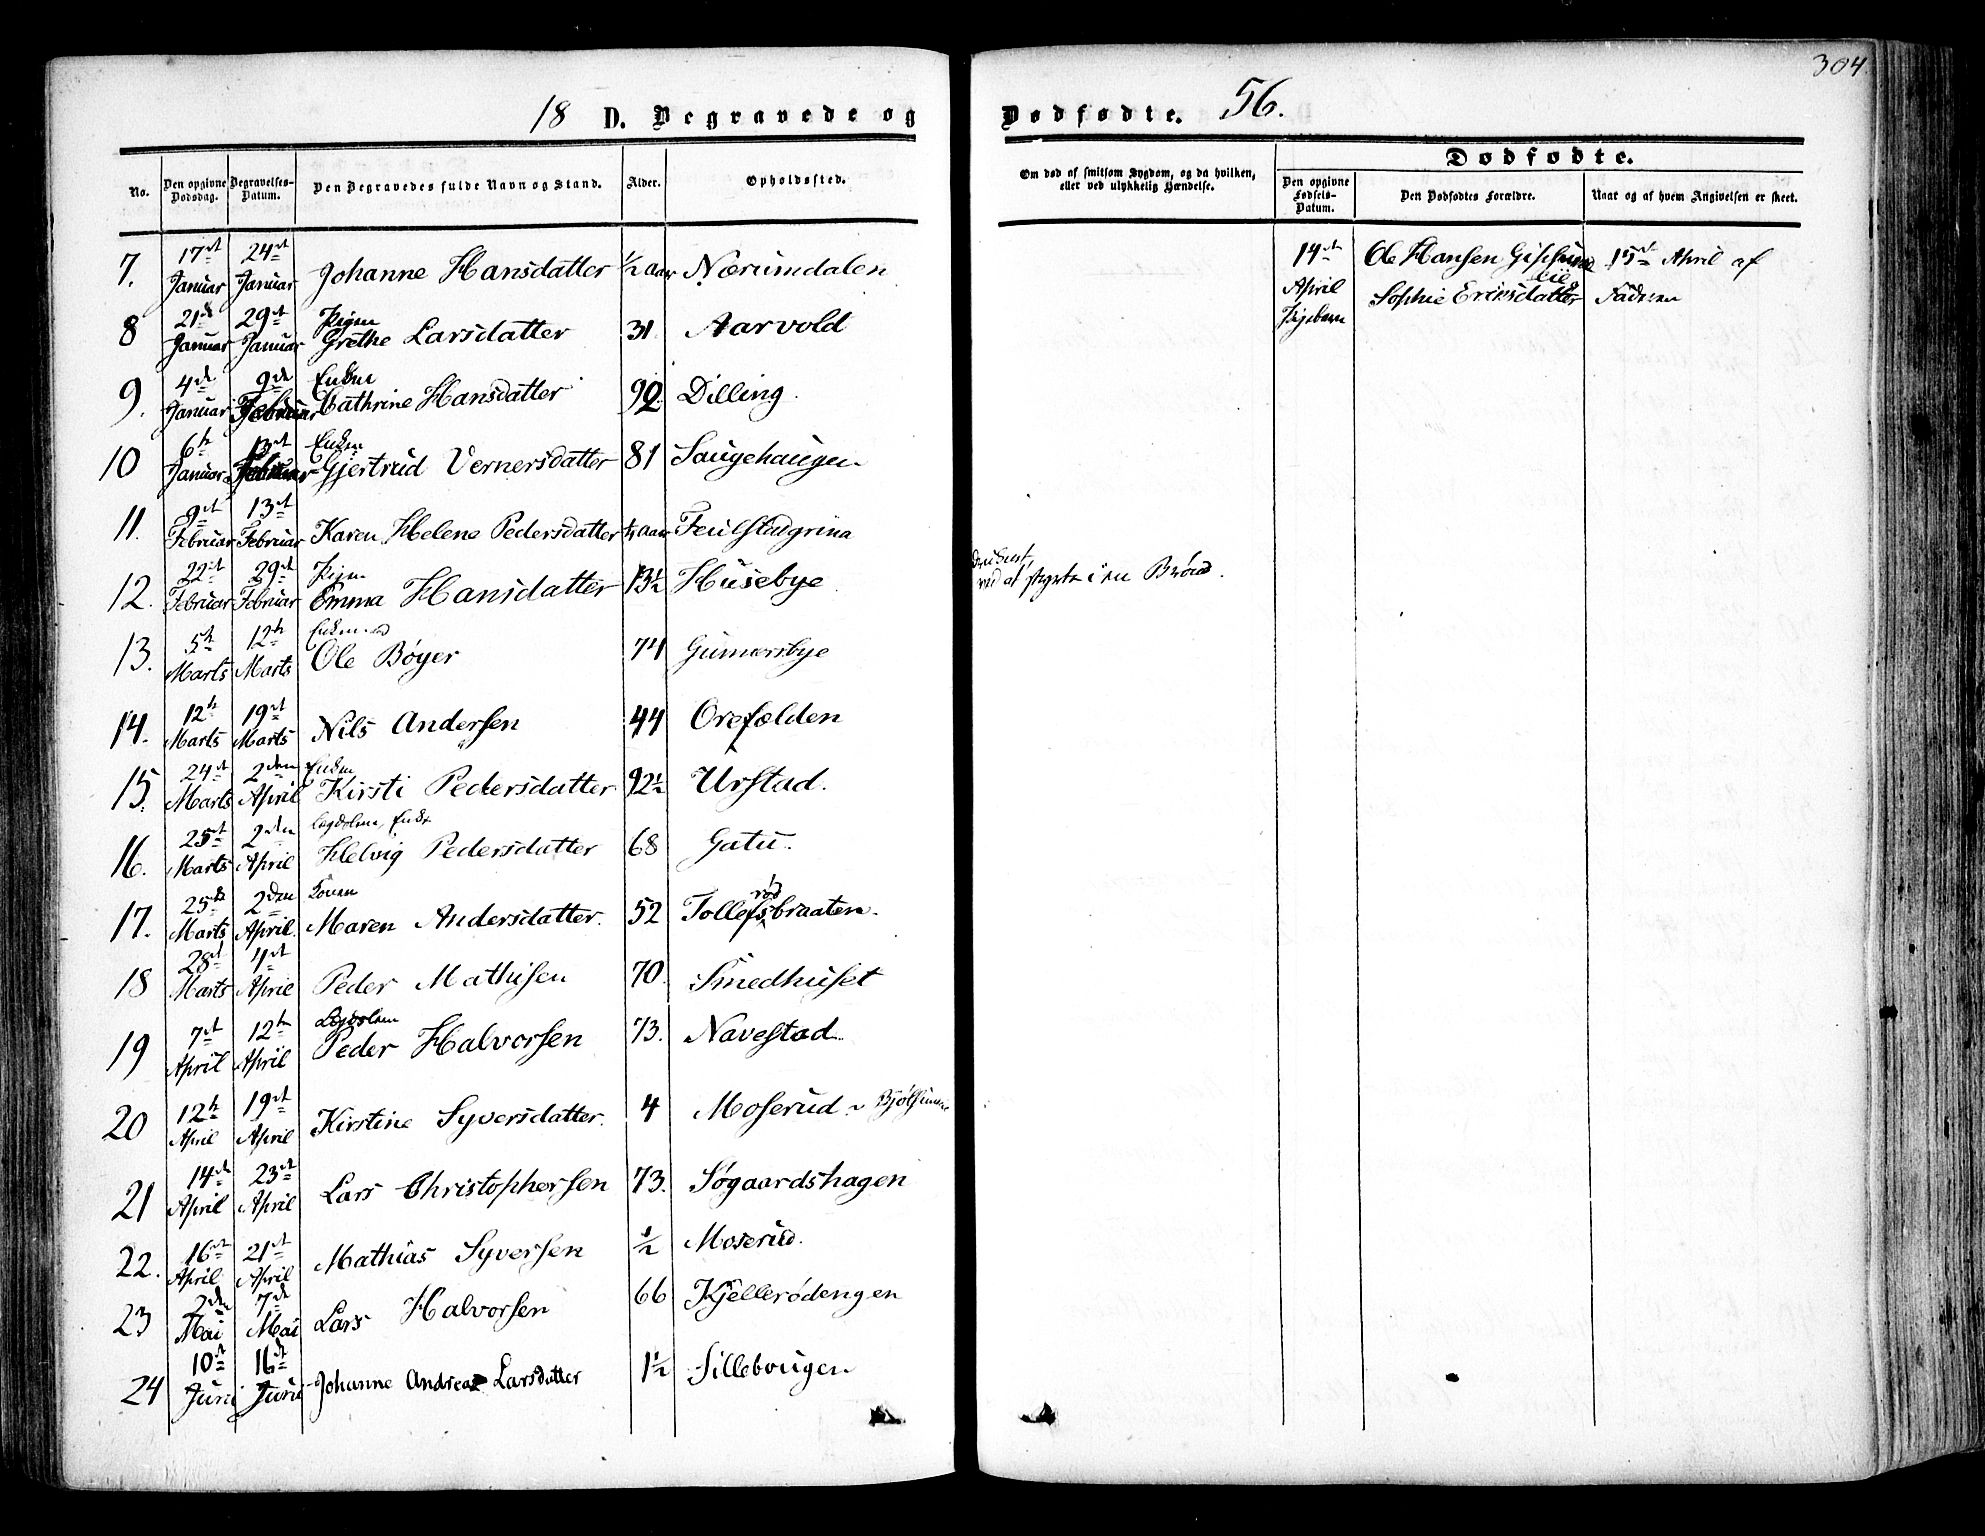 18 D. Begravede og
No. Den opgivne Dødsdag. Begravelses-Datum. Den Begravedes fulde Navn og Stand. Alder. Opholdssted.
7. 17de Januar 24de Januar Johanne Hansdatter ½ Aar Nærumdalen
8 21de Januar 29de Januar Pigen Grethe Larsdatter 31 Aarvold
9. 4de Januar 9de Februar Enken Cathrine Hansdatter 92 Dilling.
10 6te Januar 13de Februar Enken Gjertrud Vernersdatter 81 Saugehaugen
11. 9de Februar 13de Februar Karen Helene Pedersdatter Aar
12. 22de Februar 29de Februar Pigen Emma Hansdatter 13½ Husebye
13. 5te Marts 12te Marts Enkemand Ole Bøyer 74
14. 12te Marts 19de Marts Nils Andersen 44 Orefælden
15. 24de Marts 2den April Enken Kirsti Pedersdatter 92½ Urstad.
16. 25de Marts 2den April Lægdslem, Enke Helvig Pedersdatter 68 Gatu.
17. 25de Marts 2den April Konen Maren Andersdatter. 52 Tollefsrødbraaten.
18 28de Marts April Peder Mathisen 70. Smedhuset
19 7de April 12te April Lægdslem Peder Halvorsen 73. Navestad
20 12te April 19de April Kirstine Syversdatter. 4 Moserud
21 14de April 23de April Lars Christophersen 73. Søgaardshagen
22. 16de April 21de April Mathias Syversen ½ Moserud.
23 2den Mai 7de Mai Lars Halvorsen 66 Kjellerødengen
24 10de Juni 16de Juni Johanne Andrea Larsdatter 1½
304
Dødfødte. 56.
Om død af smitsom Sygdom, og da hvilken, eller ved ulykkelig Hændelse.
Dødfødte.
Den opgivne Fødsels-Datum. Den Dødfødtes Forældre. Naar og af hvem Angivelsen er skeet.
14de April Pigebarn Ole Hansen Sophie Eriksdatter 15de April af Faderen
Druknet, ved at styrte i en Brønd.